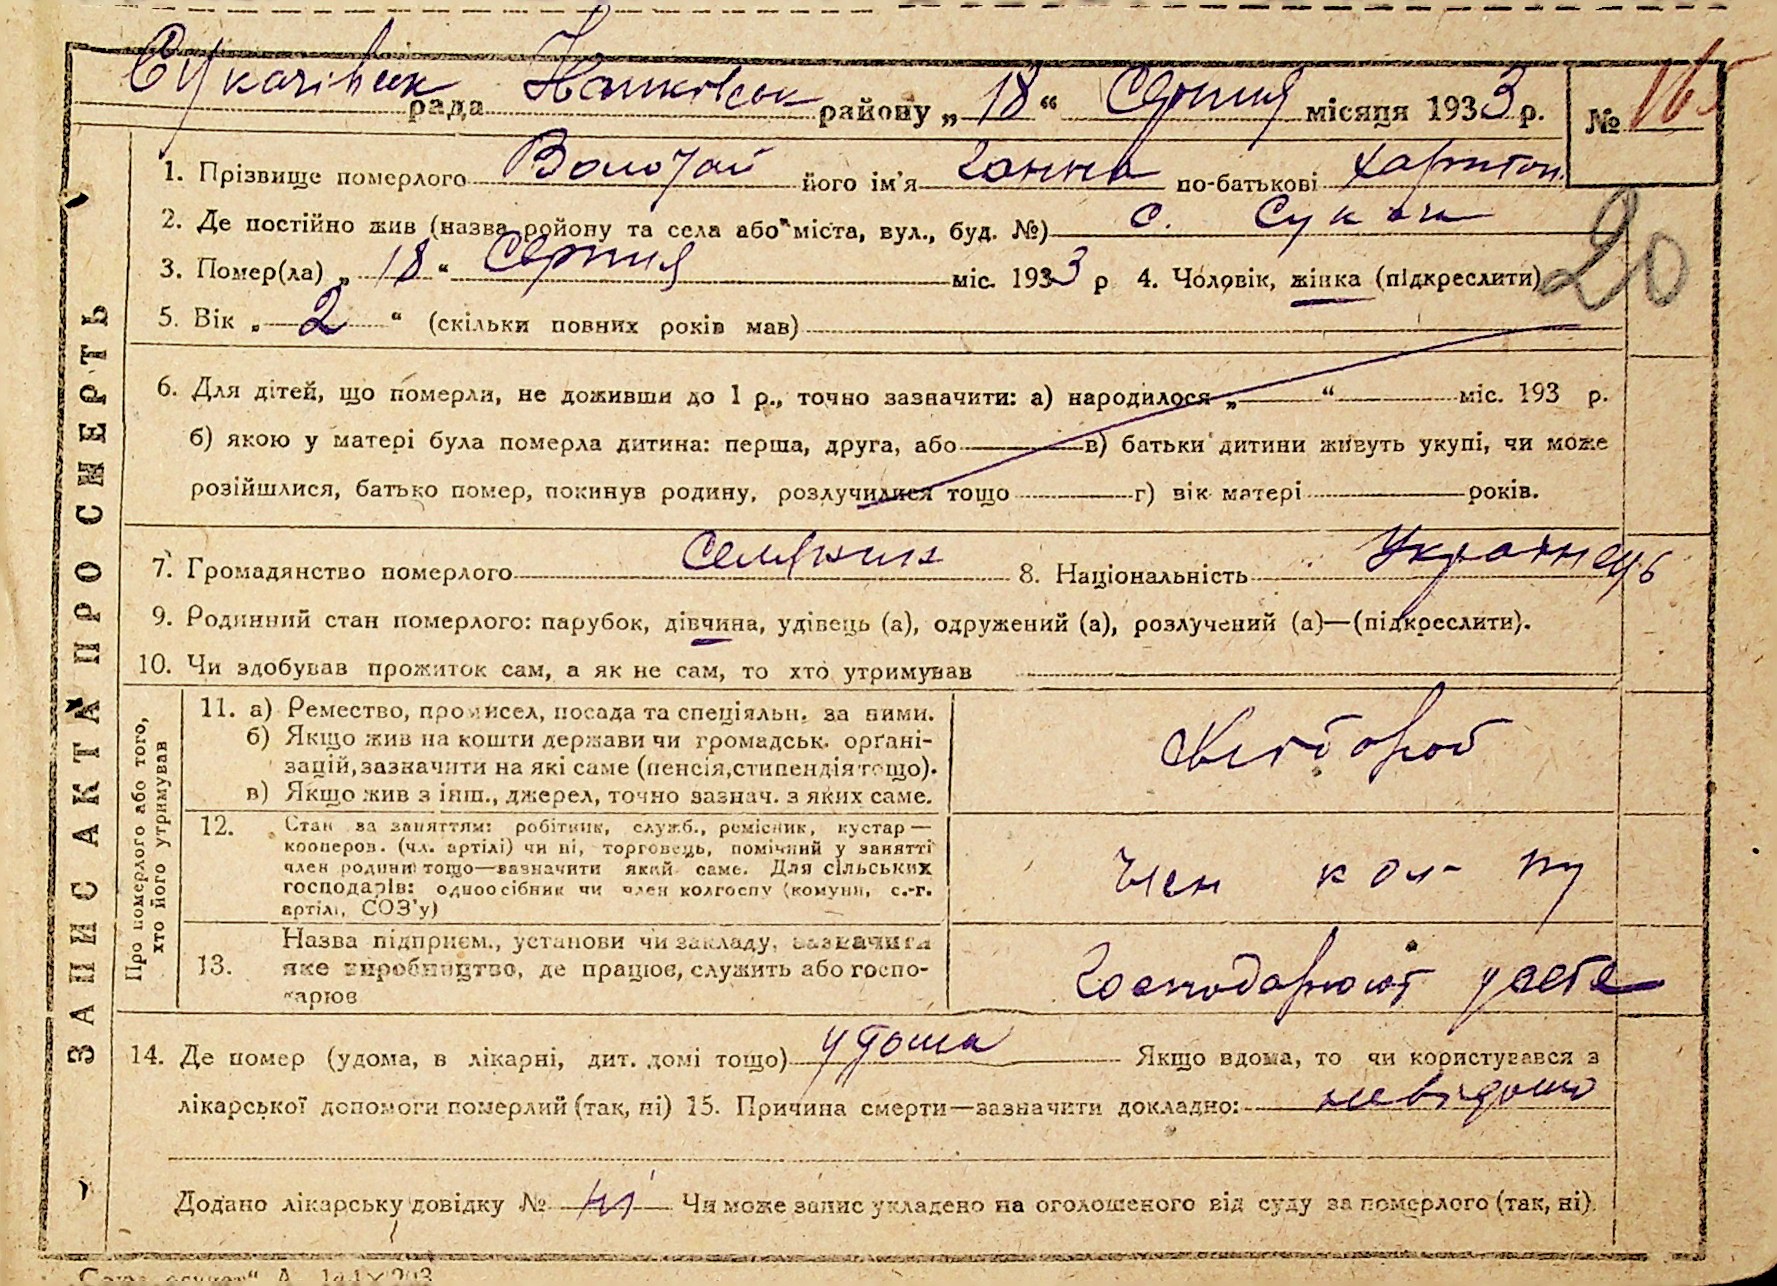 Сукачівськ рада Іванківськ району „18“ Серпня місяця 1933 р. № 16
1. Прізвище померлого його ім'я Ганна по-батькові Харитон.
2. Де постійно жив (назва ройону та села або міста, вул., буд. №) с. Сукачі
20
3. Помер(ла) „18“ Серпня міс. 1933 р 4. Чоловік, жінка (підкреслити)
5. Вік „2“ (скільки повних років мав)
6. Для дітей, що померли, не доживши до 1 р., точно зазначити: а) народилося „ “ міс. 193 р.
б) якою у матері була померла дитина: перша, друга, або в) батьки дитини живуть укупі, чи може
розійшлися, батько помер, покинув родину, розлучилися тощо г) вік матері років.
7. Громадянство померлого Селянин 8. Національність Українець
9. Родинний стан померлого: парубок, дівчина, удівець (а), одружений (а), розлучений (а)—(підкреслити).
10. Чи здобував прожиток сам, а як не сам, то хто утримував
ЗАПИС АКТА ПРО СМЕРТЬ
Про померлого або того,
хто його утримував
11. а) Ремество, промисел, посада та спеціяльн. за ними.
б) Якщо жив на кошти держави чи громадськ. орґані-
зацій, зазначити на які саме (пенсія, стипендія тощо).
в) Якщо жив з інш., джерел, точно зазнач. з яких саме.
Хлібороб
12. Стан за заняттям: робітник, служб., ремісник, кустар—
кооперов. (чл. артілі) чи ні, торговець, помічний у занятті
член родини тощо—зазначити який саме. Для сільських
господарів: одноосібник чи член колгоспу (комуни, с.-г.
артілі, СОЗ'у)
Член кол-пу
13. Назва підприєм., установи чи закладу, зазначити
яке виробництво, де працює, служить або госпо-
дарює
Господарюют
14. Де помер (удома, в лікарні, дит. домі тощо) удома Якщо вдома, то чи користувався з
лікарської допомоги померлий (так, ні) 15. Причина смерти—зазначити докладно: невідомо
Додано лікарську довідку № ні Чи може запис укладено на оголошеного від суду за померлого (так, ні).